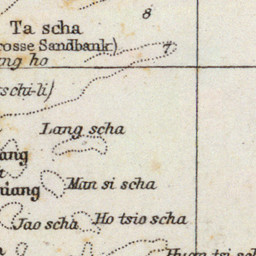 8
Ta scha
rosse Sandbank)
7
ng ho
schi-li)
Lang scha
ang
t
iang
Man si scha
Jao scha
Ho tsio scha
n
Huan tsi scha